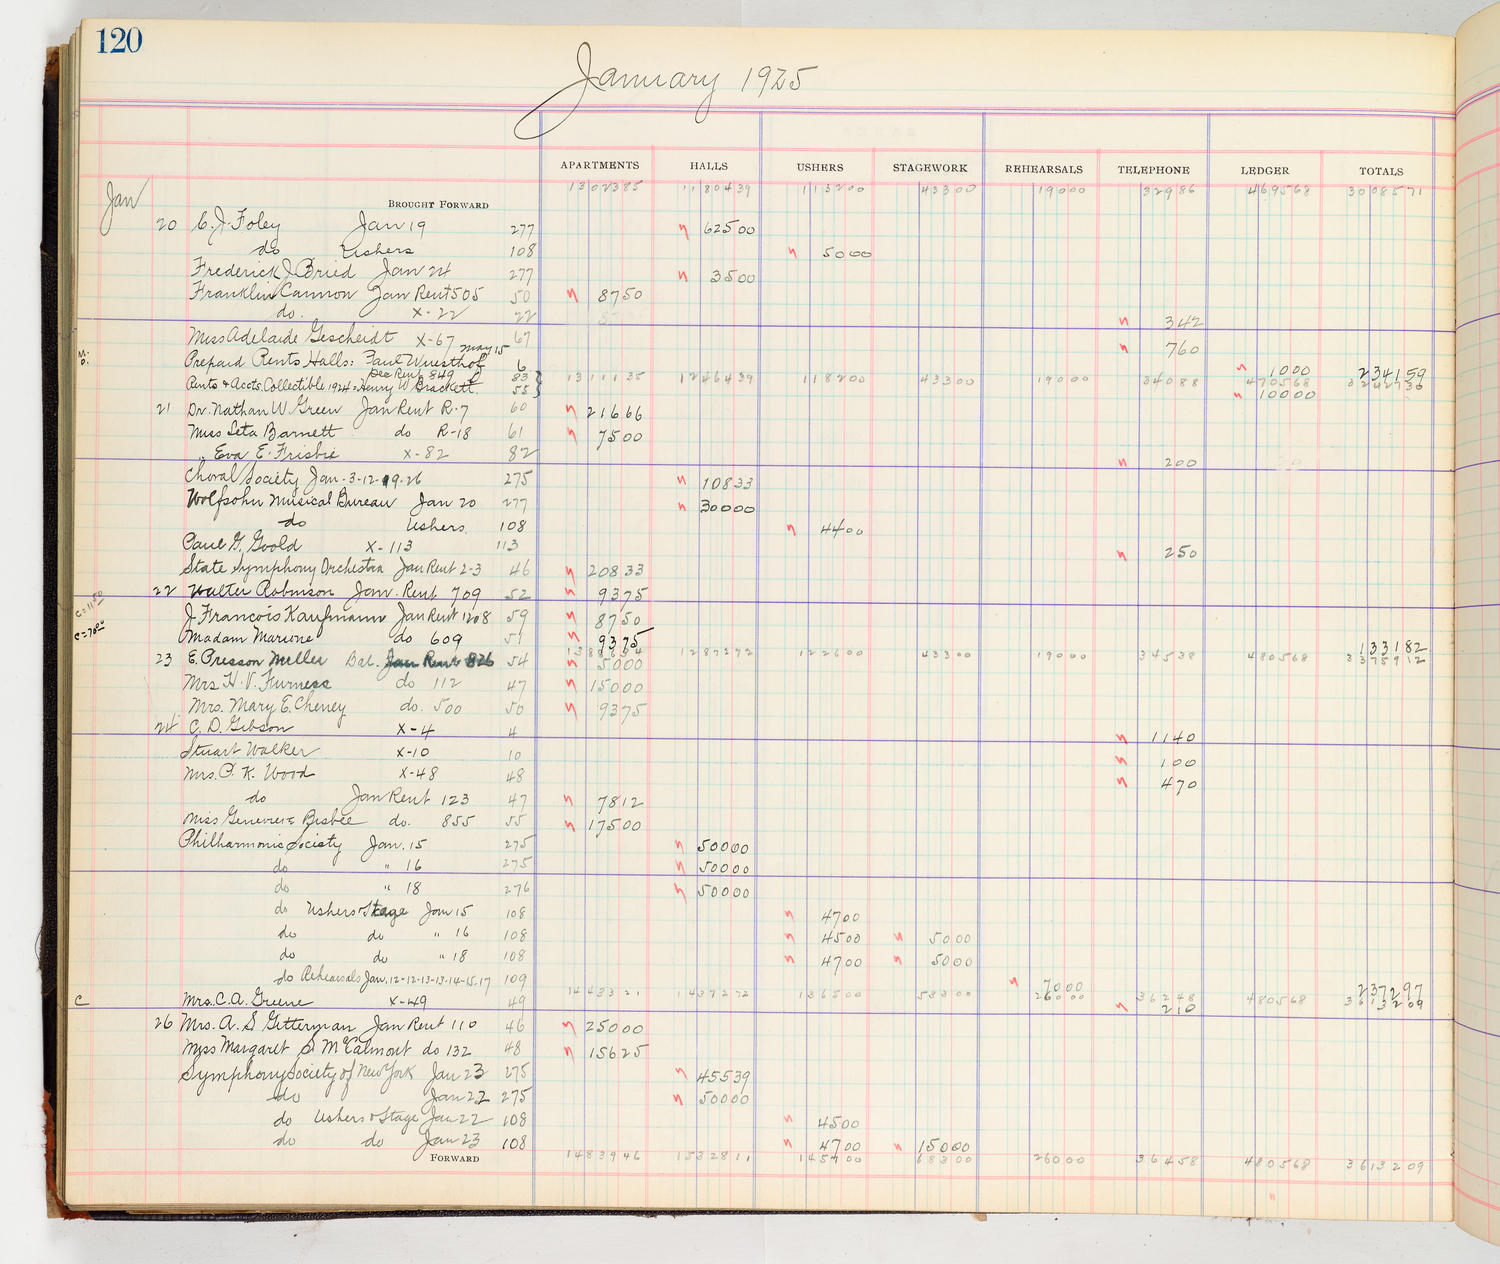 120
January 1925
APARTMENTS HALLS USHERS STAGEWORK REHEARSALS TELEPHONE LEDGER TOTALS
Jan BROUGHT FORWARD 1302385 1180439 113200 43300 19000 32986 469568 3008571
20 E. J. Foley Jan 19 277 62500
do Ushers 108 5000
Frederick J. Bried Jan 24 277 3500
Franklin Cannon Jan Rent 505 50 8750
do. X-22 22 342
Miss Adelaide Gescheidt X-67 67 760
Prepaid Rents Halls: Paul Wuesthof May 15 6 1000 234159
Dec Rent 849 83 1311135 1246439 118200 43300 19000 34088 470568 3242730
Rents & Accts. Collectible 1924 = Henry W. Brackett. 55 10000
21 Dr. Nathan W. Green Jan Rent R-7 60 21666
Miss Seta Barnett do R-18 61 7500
" Eva E. Frisbie X-82 82 200
Choral Society Jan-3-12-19-26 275 10833
Wolfsohn Musical Bureau Jan 20 277 30000
do Ushers. 108 4400
Paul G. Goold X-113 113 250
State Symphony Orchestra Jan Rent 2-3 46 20833
22 Walter Robinson Jan. Rent 709 52 9375
J. Francois Kaufmann Jan Rent 1208 59 8750
Madam Marione do 609 51 9375 133182
1388634 1287272 122600 43300 19000 34538 480568 3375912
23 E. Presson Miller Bal. Jan Rent 826 54 5000
Mrs H. V. Furness do 112 47 15000
Mrs. Mary E. Cheney do. 500 50 9375
24 C. D. Gibson X-4 4 1140
Stuart Walker X-10 10 100
Mrs. C. K. Wood X-48 48 470
do Jan Rent 123 47 7812
Miss Genevieve Bisbee do. 855 55 17500
Philharmonic Society Jan. 15 275 50000
do " 16 275 50000
do " 18 276 50000
do Ushers & Stage Jan 15 108 4700
do do " 16 108 4500 5000
do do " 18 108 4700 5000
do Rehearsals Jan. 12-12-13-13-14-15-17 109 7000 237297
1443321 1437272 136500 53300 26000 36248 480568 3613209
C Mrs. C. A. Greene X-49 49 210
26 Mrs. A. S. Gitterman Jan Rent 110 46 25000
Miss Margaret S. McCalmont do 132 48 15625
Symphony Society of New York Jan 23 275 45539
do Jan 22 275 50000
do Ushers & Stage Jan 22 108 4500
do do Jan 23 108 4700 15000
FORWARD 1483946 1532811 145700 68300 26000 36458 480568 3613209